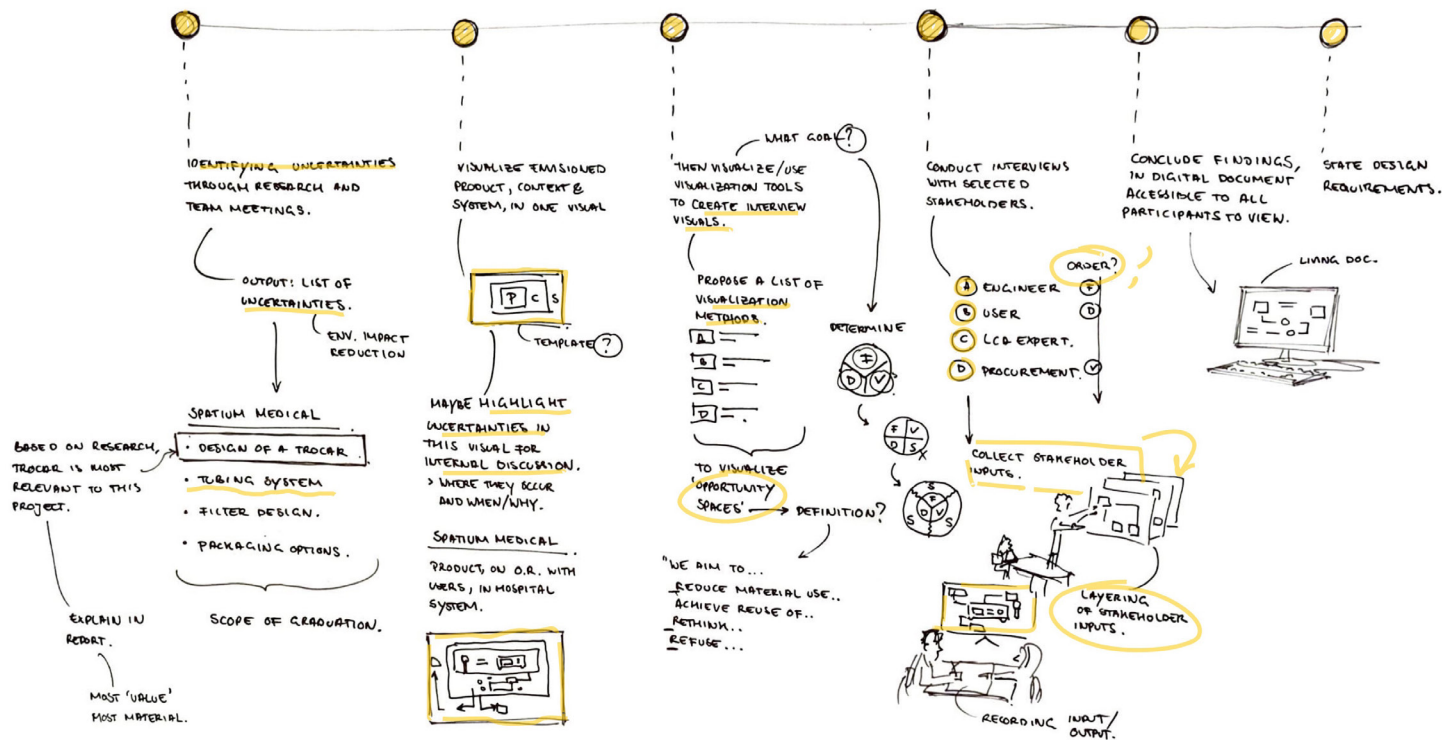 IDENTIFYING UNCERTAINTIES
THROUGH RESEARCH AND
TEAM MEETINGS.
OUTPUT: LIST OF
UNCERTAINTIES.
ENV. IMPACT
REDUCTION
SPATIUM MEDICAL
• DESIGN OF A TROCAR
• TUBING SYSTEM
• FILTER DESIGN.
• PACKAGING OPTIONS.
SCOPE OF GRADUATION.
BASED ON RESEARCH,
TROCAR IS MOST
RELEVANT TO THIS
PROJECT.
EXPLAIN IN
REPORT.
MOST 'VALUE'
MOST MATERIAL.
VISUALIZE ENVISIONED
PRODUCT, CONTEXT &
SYSTEM, IN ONE VISUAL
P C S
TEMPLATE?
MAYBE HIGHLIGHT
UNCERTAINTIES IN
THIS VISUAL FOR
INTERNAL DISCUSSION.
> WHERE THEY OCCUR
AND WHEN/WHY.
SPATIUM MEDICAL
PRODUCT, ON O.R. WITH
USERS, IN HOSPITAL
SYSTEM.
WHAT GOAL?
THEN VISUALIZE/USE
VISUALIZATION TOOLS
TO CREATE INTERVIEW
VISUALS.
PROPOSE A LIST OF
VISUALIZATION
METHODS.
A
B
C
D
TO VISUALIZE
'OPPORTUNITY
SPACES'
DEFINITION?
"WE AIM TO...
REDUCE MATERIAL USE..
ACHIEVE REUSE OF..
RETHINK..
REFUSE...
DETERMINE
F
D V
F V
D S
X
S
F
D V
S S
CONDUCT INTERVIEWS
WITH SELECTED
STAKEHOLDERS.
ORDER?
A ENGINEER F
B USER D
C LCA EXPERT.
D PROCUREMENT. V
COLLECT STAKEHOLDER
INPUTS.
LAYERING
OF STAKEHOLDER
INPUTS.
RECORDING INPUT/
OUTPUT.
CONCLUDE FINDINGS,
IN DIGITAL DOCUMENT
ACCESSIBLE TO ALL
PARTICIPANTS TO VIEW.
LIVING DOC.
STATE DESIGN
REQUIREMENTS.